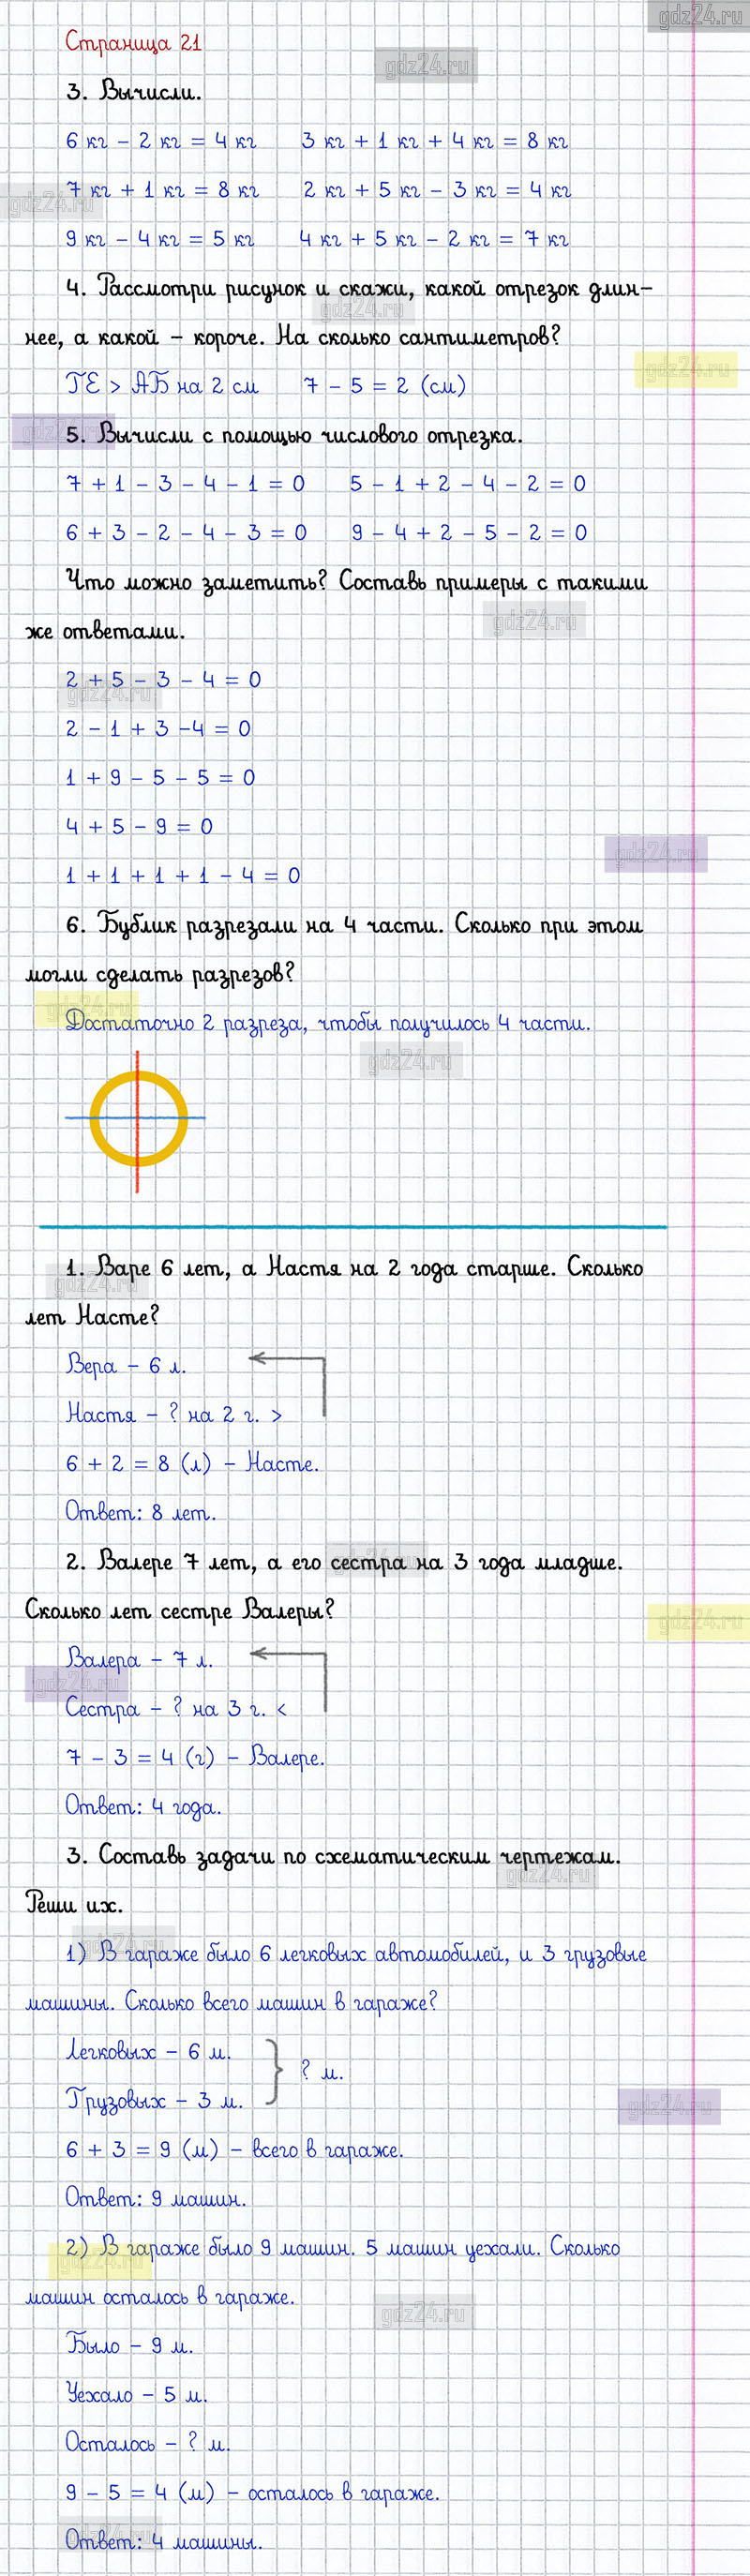 gdz24.ru
Страница 21
gdz24.ru
3. Вычисли.
6 кг - 2 кг = 4 кг 3 кг + 1 кг + 4 кг = 8 кг
7 кг + 1 кг = 8 кг 2 кг + 5 кг - 3 кг = 4 кг
gdz24.ru
9 кг - 4 кг = 5 кг 4 кг + 5 кг - 2 кг = 7 кг
4. Рассмотри рисунок и скажи, какой отрезок длин-
gdz24.ru
нее, а какой - короче. На сколько сантиметров?
gdz24.ru
ГЕ > АБ на 2 см 7 - 5 = 2 (см)
gdz24.ru
5. Вычисли с помощью числового отрезка.
7 + 1 - 3 - 4 - 1 = 0 5 - 1 + 2 - 4 - 2 = 0
6 + 3 - 2 - 4 - 3 = 0 9 - 4 + 2 - 5 - 2 = 0
Что можно заметить? Составь примеры с такими
gdz24.ru
же ответами.
2 + 5 - 3 - 4 = 0
gdz24.ru
2 - 1 + 3 -4 = 0
1 + 9 - 5 - 5 = 0
4 + 5 - 9 = 0
gdz24.ru
1 + 1 + 1 + 1 - 4 = 0
6. Бублик разрезали на 4 части. Сколько при этом
могли сделать разрезов?
gdz24.ru
Достаточно 2 разреза, чтобы получилось 4 части.
gdz24.ru
1. Варе 6 лет, а Настя на 2 года старше. Сколько
gdz24.ru
лет Насте?
Вера - 6 л.
Настя - ? на 2 г. >
6 + 2 = 8 (л) - Насте.
Ответ: 8 лет.
2. Валере 7 лет, а его сестра на 3 года младше.
gdz24.ru
Сколько лет сестре Валеры?
gdz24.ru
Валера - 7 л.
gdz24.ru
Сестра - ? на 3 г. <
7 - 3 = 4 (г) - Валере.
Ответ: 4 года.
3. Составь задачи по схематическим чертежам.
gdz24.ru
Реши их.
gdz24.ru
1) В гараже было 6 легковых автомобилей, и 3 грузовые
машины. Сколько всего машин в гараже?
Легковых - 6 м.
? м.
Грузовых - 3 м.
gdz24.ru
6 + 3 = 9 (м) - всего в гараже.
Ответ: 9 машин.
2) В гараже было 9 машин. 5 машин уехали. Сколько
gdz24.ru
машин осталось в гараже.
gdz24.ru
Было - 9 м.
Уехало - 5 м.
Осталось - ? м.
9 - 5 = 4 (м) - осталось в гараже.
gdz24.ru
Ответ: 4 машины.